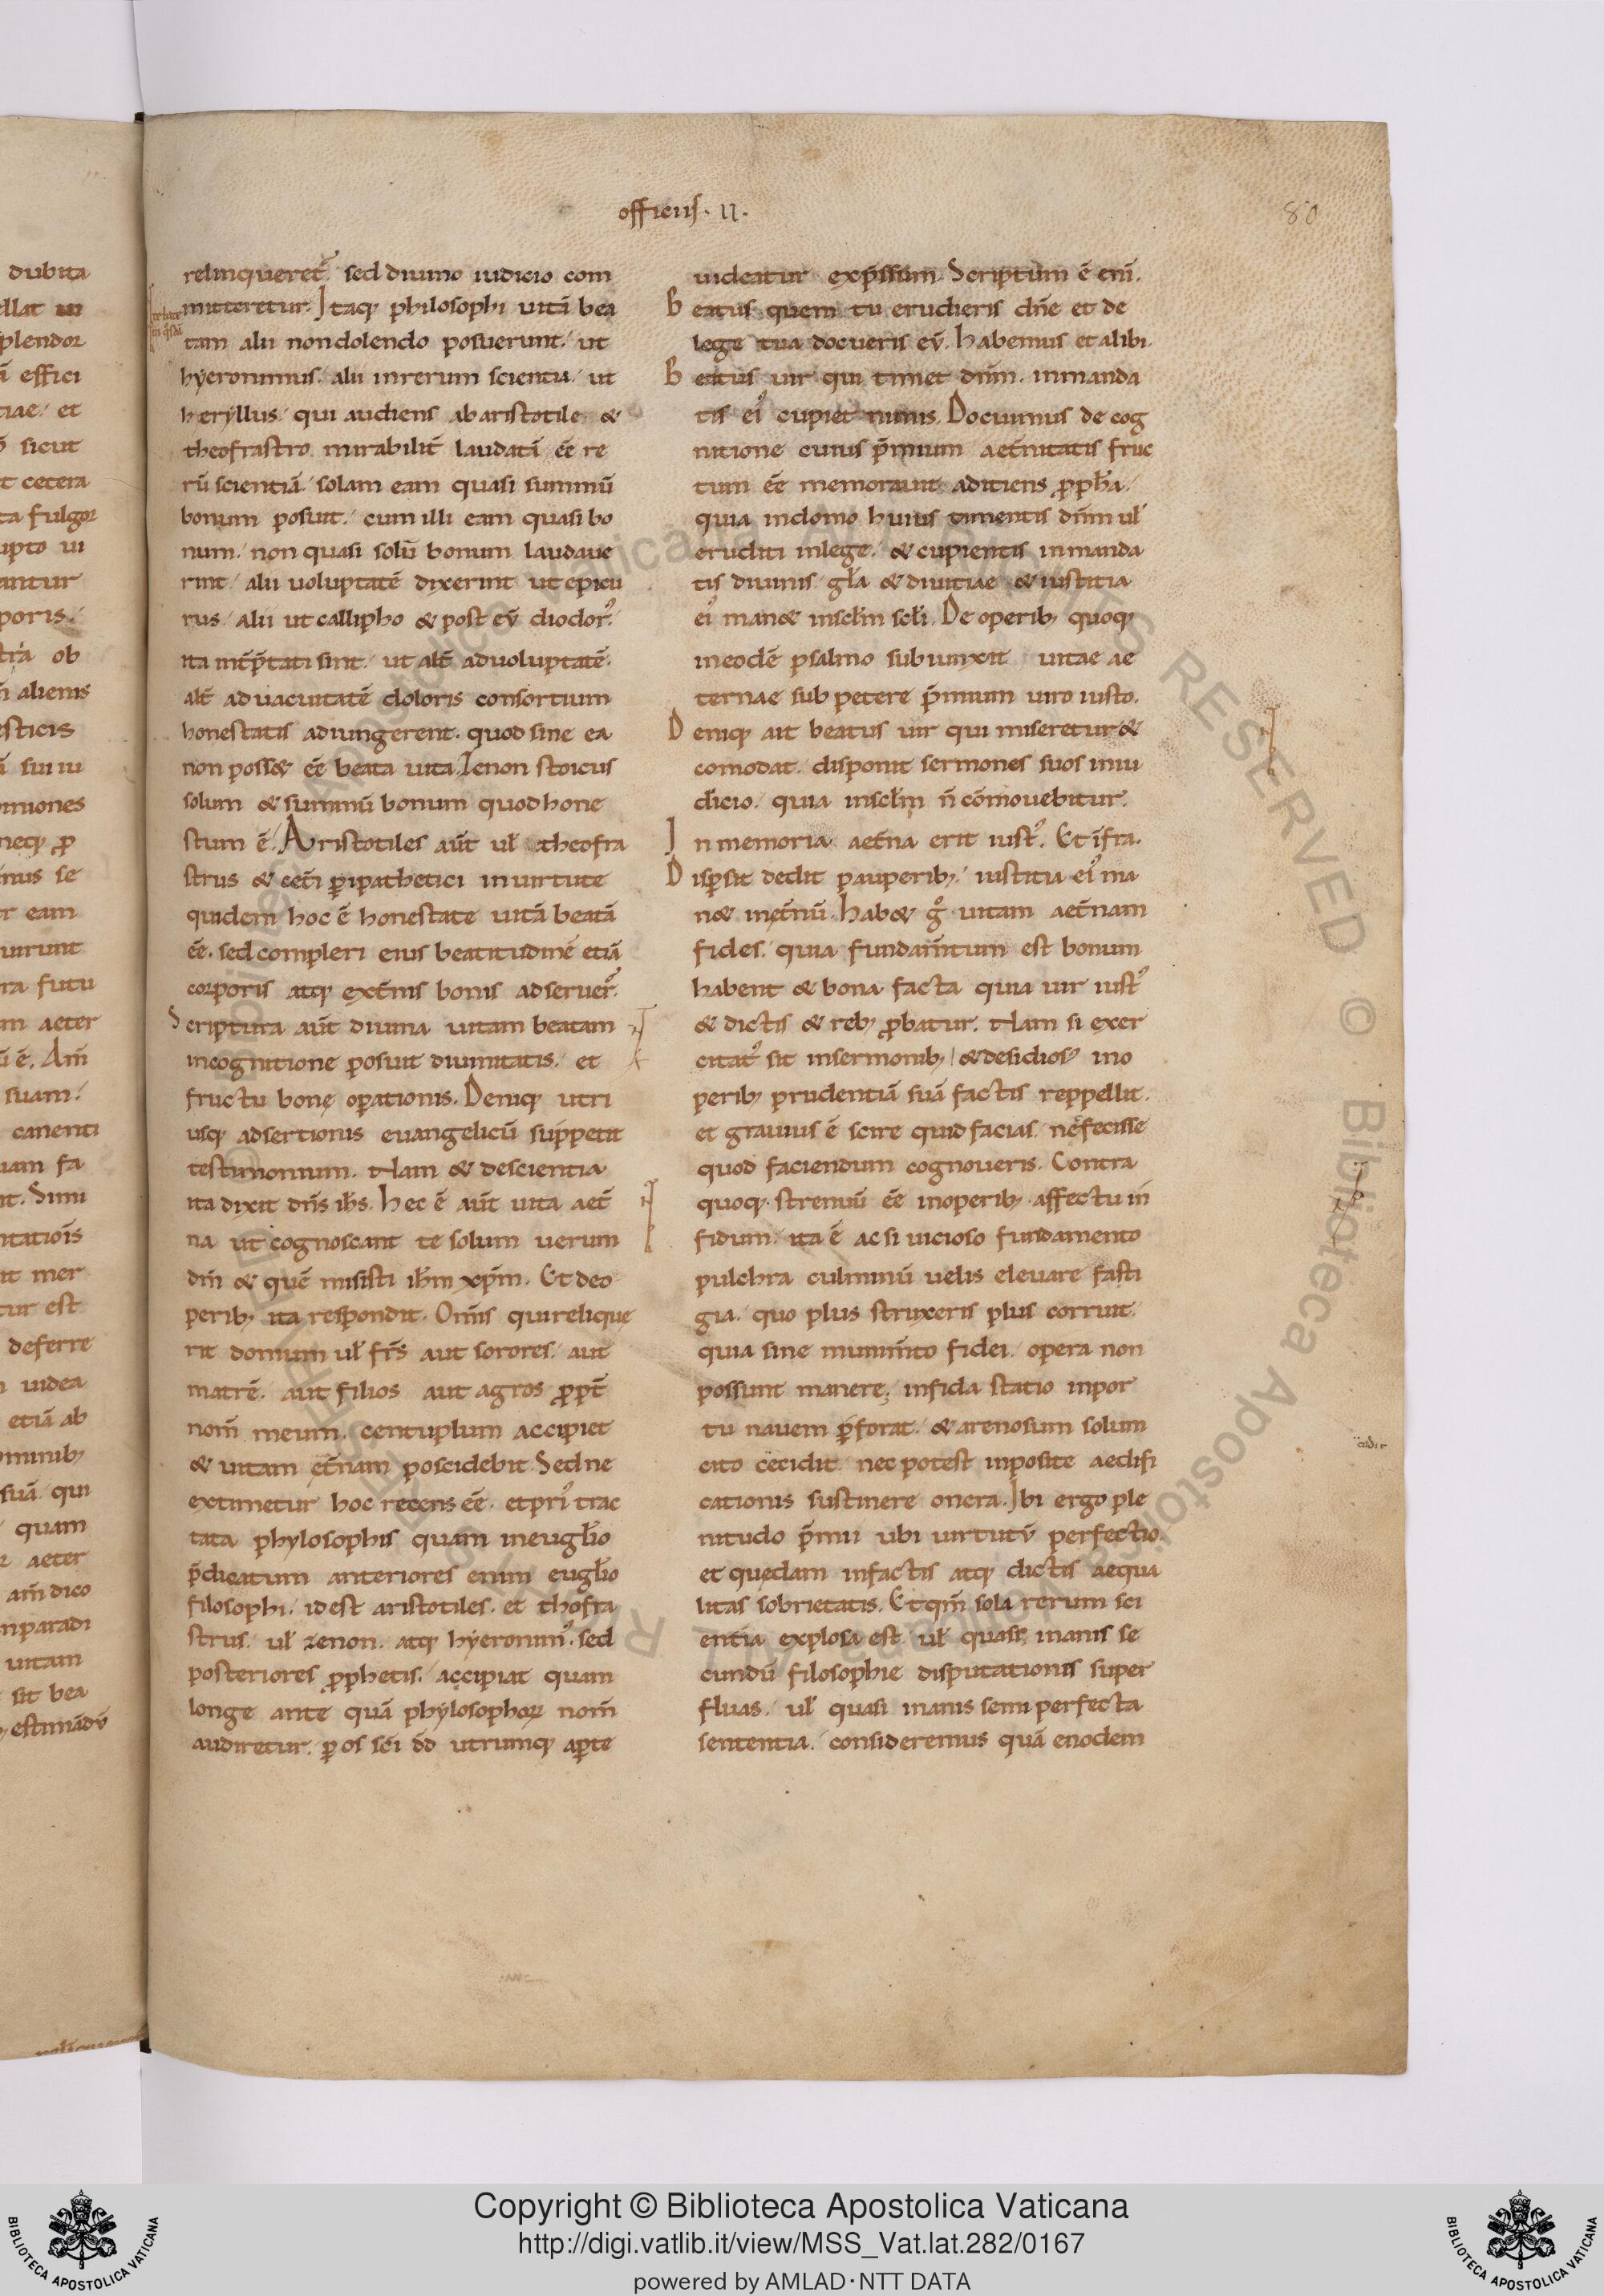 officiis · II ·
80
relinqueret᷑ sed diuino iudicio com
mitteretur. Itaq; philosophi uitā bea
tam alii non dolendo posuerunt. ut
hyeronimus. alii in rerum scientia. ut
heryllus. qui audiens ab aristotile &
theofrastro mirabilit̄ laudatā ēe re
rū scientiā. solam eam quasi summū
bonum posuit. cum illi eam quasi bo
num. non quasi solū bonum laudaue
rint. alii uoluptatē dixerunt ut epicu
rus. alii ut callipho & post eū diodor᷒.
ita int̄p̄tati sint. ut alt̄ ad uoluptatē.
alt̄ ad uacuitatē doloris consortium
honestatis adiungerent. quod sine ea
non poss& ēe beata uita. Zenon stoicus
solum & summū bonum quod hone
stum ē. Aristotiles aūt ul̄ theofra
strus & cet̄i ꝑipathetici in uirtute
quidem hoc ē honestate uitā beatā
ēe. sed compleri eius beatitudinē etiā
corporis atq; ext̄nis bonis adseruer᷒.
Scriptura aūt diuina uitam beatam
incognitione posuit diuinitatis. et
fructu bonę oꝑationis. Deniq; utri
usq; adsertionis euangelicū suppetit
testimonium. Nam & descientia
ita dixit dn̄s ih̄s. Hec ē aūt uita aet̄
na ut cognoscant te solum uerum
dm̄ & quē misisti ih̄m xp̄m. Et deo
perib; ita respondit. Om̄is qui relique
rit domum ul̄ fr̄s aut sorores. aut
matrē. aut filios aut agros ꝓpt̄
nom̄ meum. centuplum accipiet
& uitam et̄nam possidebit. Sed ne
extimetur hoc recens ēe. et pri᷒ trac
tata phylosophis quam in eugl̄io
p̄dicatum anteriores enim eugl̄io
filosophi. id est aristotiles. et thofra
strus. ul̄ zenon. atq; hyeronim᷒. sed
posteriores ꝓphetis. accipiat quam
longe ante quā phylosophoꝝ nom̄
audiretur. ꝑ os sc̄i dd̄ utrumq; aꝑte
uideatur exp̄ssum. Scriptum ē eni̅.
Beatus quem tu erudieris dn̄e et de
lege tua docueris eū. Habemus et alibi.
Beatus uir qui timet dn̄m. in manda
tis ei᷒ cupiet nimis. Docuimus de cog
nitione cuius p̄mium aet̄nitatis fruc
tum ēe memorauit aditiens ꝓph̄a.
quia in domo huius timentis dn̄m ul̄
eruditi in lege. & cupientis in manda
tis diuinis gl̄a & diuitiae & iustitia
ei᷒ man& in scl̄m scl̄i. De operib; quoq;
in eodē psalmo subiunxit uitae ae
ternae subpetere p̄mium uiro iusto.
Deniq; ait beatus uir qui miseretur &
comodat. disponit sermones suos in iu
dicio. quia in scl̄m n̄ cōmouebitur.
In memoria aet̄na erit iust᷒. Et īfra.
Disꝑsit dedit pauperib;. iustitia ei᷒ ma
n& in ęt̄nū. Hab& gͦ uitam aet̄nam
fides. quia fundam̄tum est bonum
habent & bona facta quia uir iust᷒
& dictis & reb; ꝓbatur. Nam si exer
citat᷒ sit in sermonib; & desidios᷒ in o
perib; prudentiā suā factis reppellit.
et grauius ē scire quid facias. nec fecisse
quod faciendum cognoueris. Contra
quoq; strenuū ēe in operib; affectu in
fidum. ita ē ac si uicioso fundamento
pulchra culminū uelis eleuare fasti
gia. quo plus struxeris plus corruit.
quia sine munim̄to fidei. opera non
possunt manere; infida statio in por
tu nauem ꝑforat. & arenosum solum
cito cecidit. nec potest inposite aedifi
cationis sustinere onera. Ibi ergo ple
nitudo p̄mii ubi uirtutū perfectio.
et quędam in factis atq; dictis aequa
litas sobrietatis. Et qm̄ sola rerum sci
entia explosa est ul̄ quasi inanis se
cundū filosophie disputationis super
fluas. ul̄ quasi inanis semiperfecta
sententia. consideremus quā enodem
Copyright © Biblioteca Apostolica Vaticana
http://digi.vatlib.it/view/MSS_Vat.lat.282/0167
powered by AMLAD·NTT DATA
BIBLIOTECA APOSTOLICA VATICANA
BIBLIOTECA APOSTOLICA VATICANA